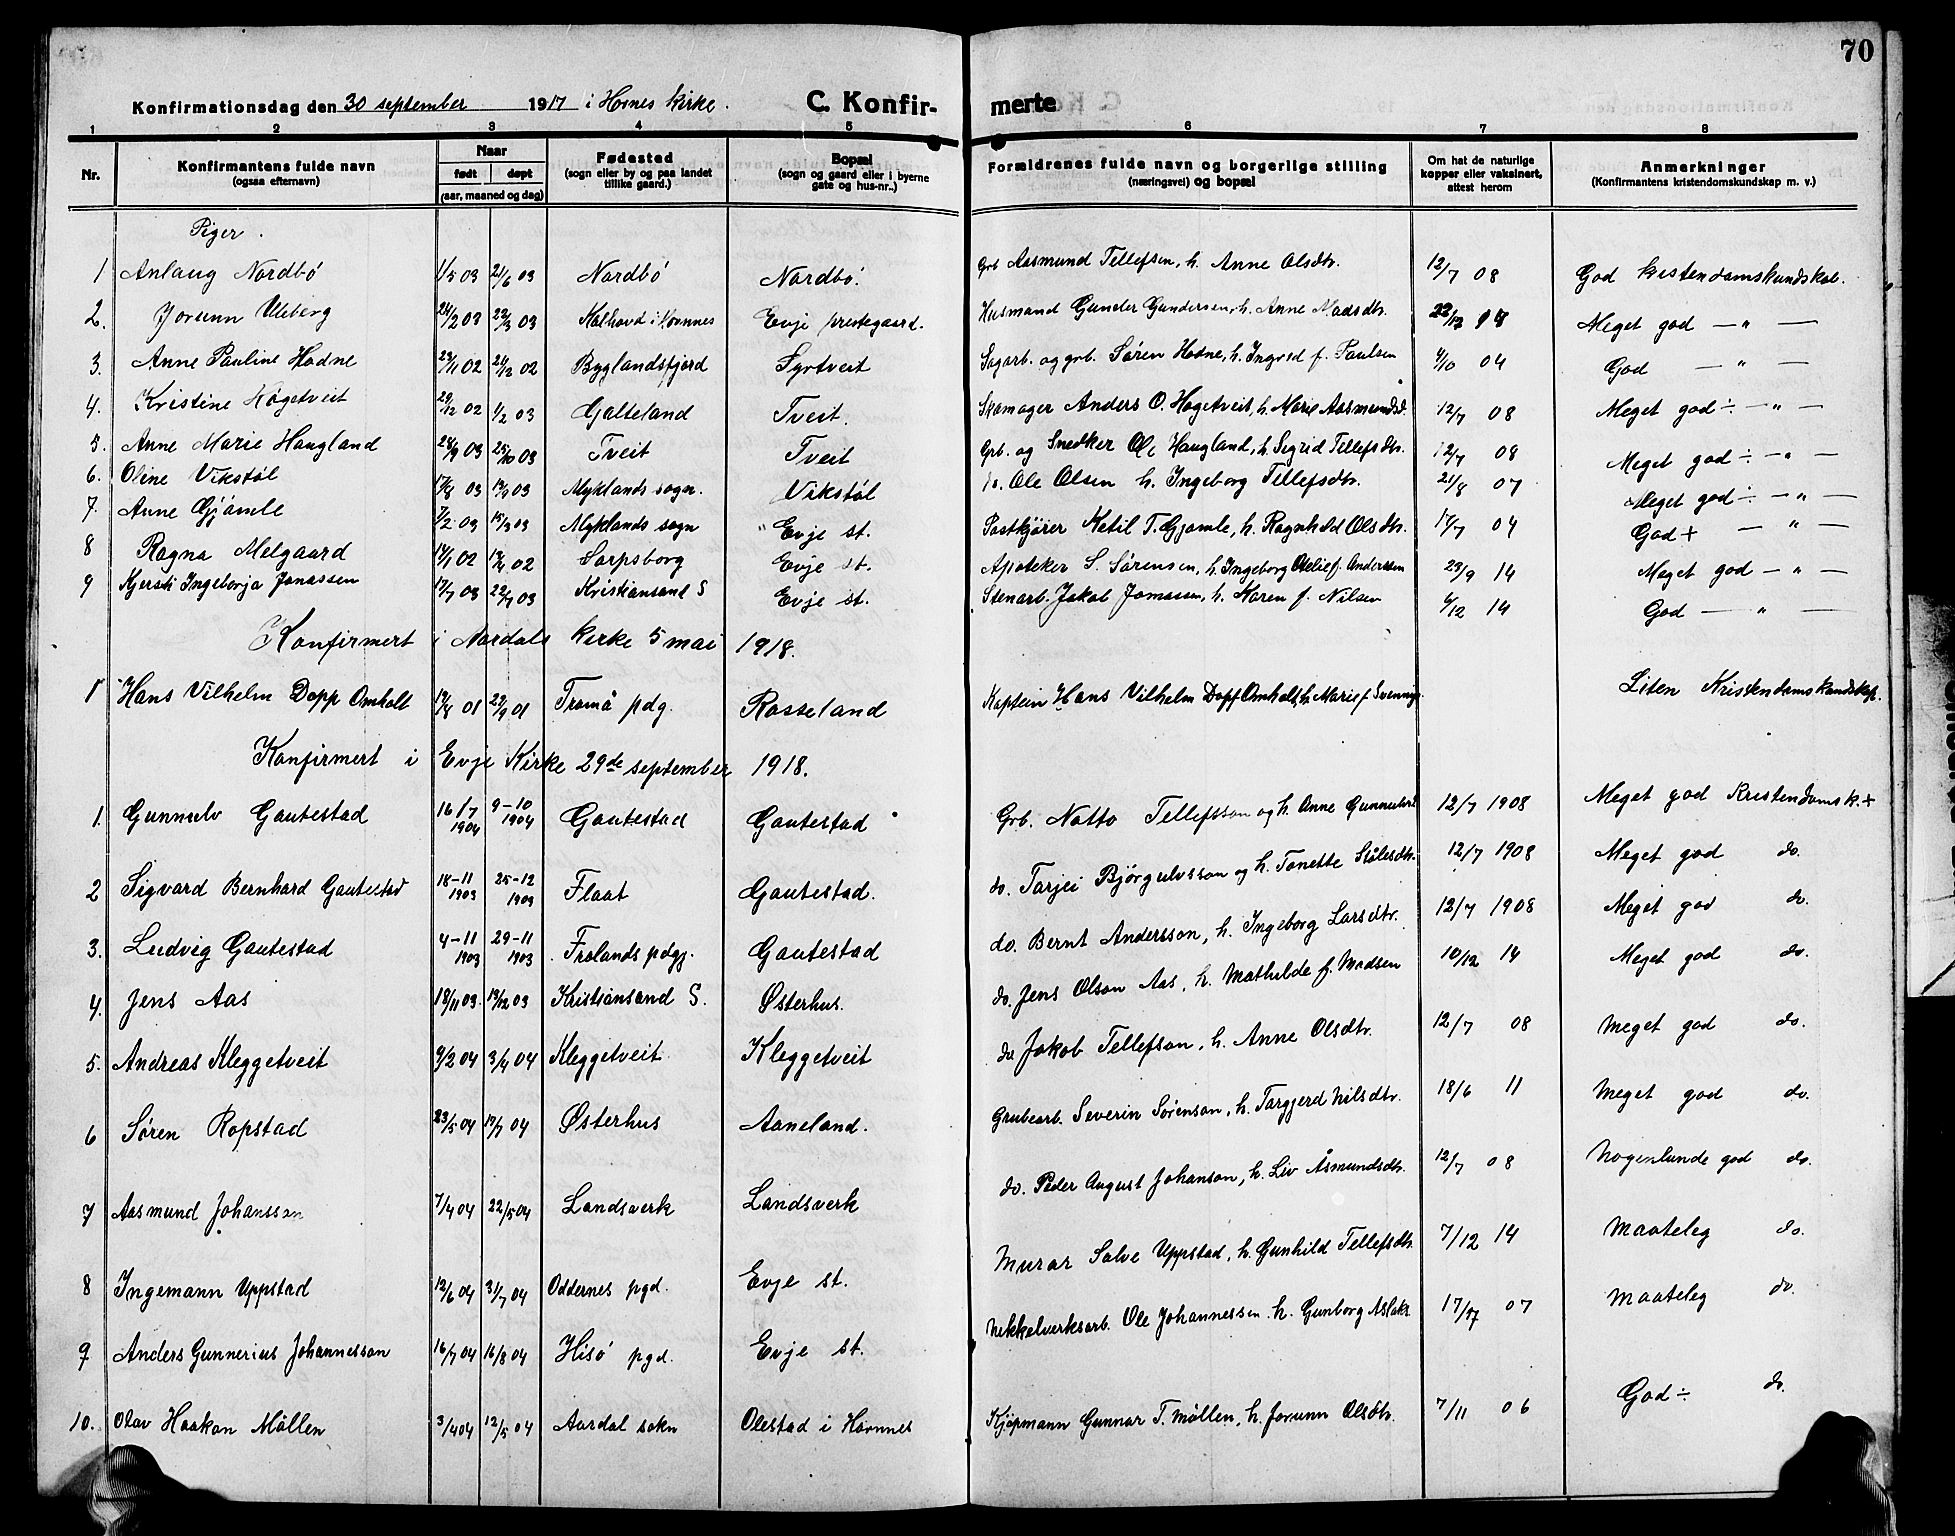 70
Konfirmationsdag den 30 september 1917 i Hornes Kirke. C. Konfirmerte
1 2 3 4 5 6 7 8
Nr. Konfirmantens fulde navn (ogsaa efternavn) Naar født døpt (aar, maaned og dag) Fødested (sogn eller by og paa landet tillike gaard.) Bopæl (sogn og gaard eller i byerne gate og hus-nr..) Forældrenes fulde navn og borgerlige stilling (næringsvei) og bopæl Om hat de naturlige kopper eller vaksinert, attest herom Anmerkninger (Konfirmantens kristendomskundskap m. v.)
Piger.
1 Anlaug Nordbö 1/5 03 21/6 03 Nordbö Nordbö. Grb Aasmund Tellefsen, h. Anne Olsdtr. 12/7 08 God kristendomskundskab.
2. Jorunn Uleberg 03 03 Evje prestegaard. Husmand Gunder Gundersen, h. Anne Madsdtr. 22/12 14 Meget god — " —
3. Anne Pauline Hodne 02 02 Byglandsfjord Syrtveit Sagarb. og grb. Søren Hodne, h. Ingrid f. Paulsen 04 God — " —
4. Kristine Högetveit 29/12 02 1/2 03 Galteland Tveit. Skomager Anders O. Hogetveit, h. Marie Aasmundsd. 12/7 08 Meget god ÷ — " —
5. Anne Marie Haugland 03 25/10 03 Tveit Tveit Grb. og Snedker Ole Haugland, h. Sigrid Tellefsdtr. 12/7 08 Meget god ÷ — " —
6. Oline Vikstöl 17/8 03 03 Myklands sogn. Vikstöl do. Ole Olsen h. Ingeborg Tellefsdtr. 21/8 07 Meget god ÷ — " —
7. Anne Gjömle 7/2 03 15/3 03 Myklands sogn " Evje st. Postkjører Ketil T. Gjömle, h. Ragnhild Olsdtr. 17/7 04 God + — " —
8 Ragna Melgaard 02 02 Sarpsborg Evje st. Apoteker S. Sørensen, h. Ingeborg Otelie f. Anderssen 23/9 14 Meget god — " —
9 Kjersti Ingeborja Jonassen 17/7 03 03 Kristiansand S Evje st. Stenarb. Jakob Jonassen, h. Maren f. Nilsen 14 God — " —
Konfirmert i Aardals kirke 5 mai 1918.
1 Hans Vilhelm Dopp Omholt 01 01 Tromö pdg. Rosseland Kaptein Hans Vilhelm Dopp Omholt, h. Marie f. Liten Kristendomskundskap.
Konfirmert i Evje Kirke 29de september 1918.
1. Gunnulv Gautestad 16/7 1904 9-10 1904 Gautestad Gautestad Grb. Notto Tellefsson og h. Anne 12/7 1908 Meget god Kristendomsk. +
2 Sigvard Bernhard Gautestad 18-11 1903 25-12 1903 Flaat Gautestad. do. Tarjei Bjørgulvsson og h. Tonette Stålesdtr. 12/7 1908 Meget god do.
3. Ludvig Gautestad 4-11 1903 29-11 1903 Frolands pdgj. Gautestad do. Bernt Andersson, h. Ingeborg Larsdtr. 12/7 1908 Meget god do.
4. Jens Aas 18/11 03. 19/12 03 Kristiansand S. Østerhus. do. Jens Olson Aas, h. Mathilde f. Madsen 10/12 14 Meget god do.
5. Andreas Kleggetveit 9/2 04 3/4 04 Kleggetveit Kleggetveit do Jakob Tellefson, h. Anne Olsdtr. 12/7 08 Meget god do.
6 Søren Ropstad 23/5 04 17/7 04 Østerhus Aaneland. Grubearb. Severin Sørenson, h. Targjerd Nilsdtr. 18/6 11 Meget god do.
7 Aasmund Johansson 7/4 04 22/5 04 Landsverk Landsverk do. Peder August Johanson, h. Liv Åsmundsdtr. 12/7 08 Nogenlunde god do.
8 Ingemann Uppstad 12/6 04 31/7 04 Oddernes pgd. Evje st. Murar Salve Uppstad, h. Gunhild Tellefsdtr. 7/12 14 Maateleg do.
9 Anders Gunnerius Johannesson 16/7 04 16/8 04 Hisö pgd. Evje st. Nikkelverksarb. Ole Johannessen. h. Gunborg Aslaks 07 Maateleg do.
10. Olav Haakon Möllen 3/4 04 12/5 04 Aardal sokn Olestad i Hornnes Kjøpmann Gunnar T. Möllen, h. Jorunn Olsdtr. 7/11 06 God ÷ do.